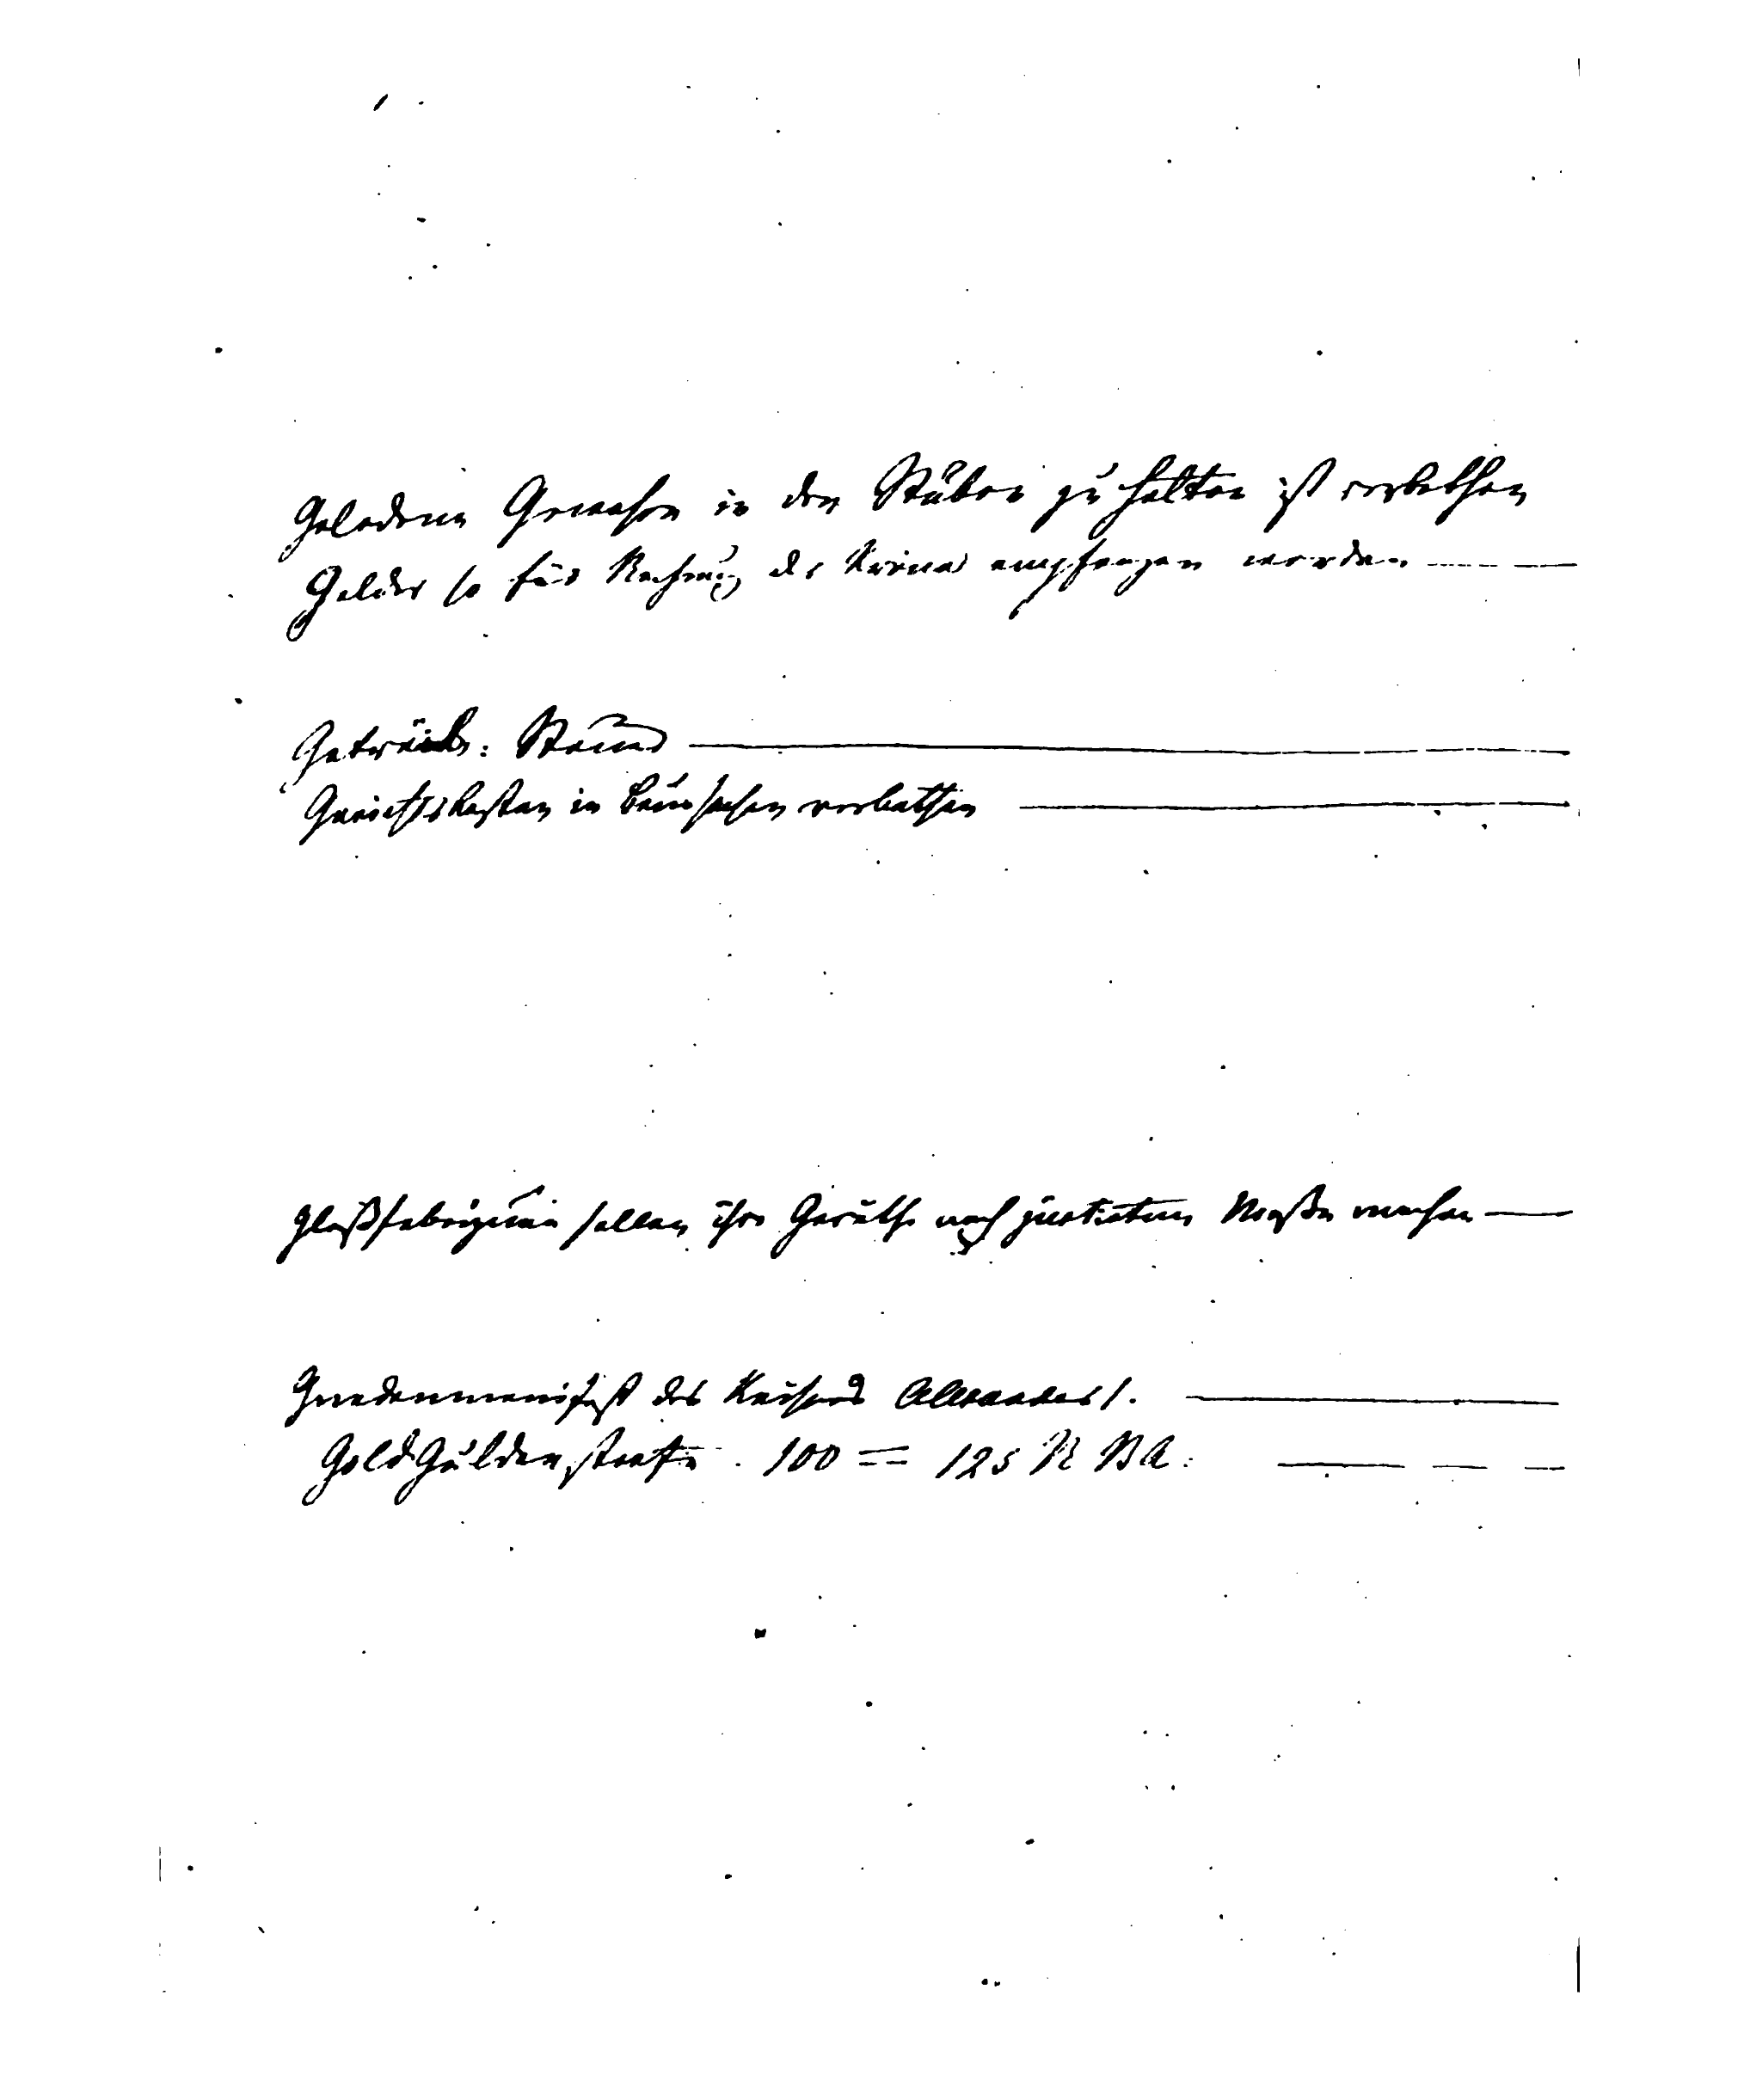 Geladene Gewehre in den Stuben zu halten ist verbothen
Gelder so für Rechnung der Krone empfangen werden
Getränk: Steuer
Gerichtskosten in verbothen
Glaßfabriquen sollen ihre Geräthe nach justirten Maßen machen
Gnadenmanifest des Kaisers Alexander I.
Gold Gulden strafe 100 = 125 R B A: